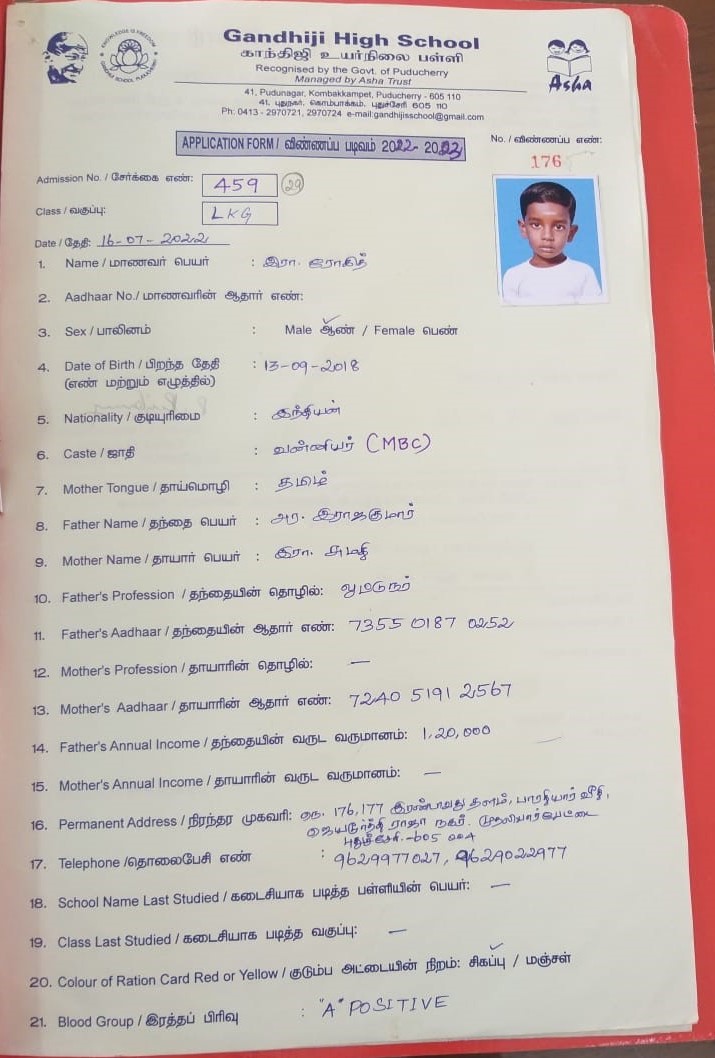 KNOWLEDGE IS FREEDOM
Gandhiji High School
காந்திஜி உயர்நிலை பள்ளி
Recognised by the Govt. of Puducherry
Managed by Asha Trust
Asha
41, Pudunagar, Kombakkampet, Puducherry - 605 110
41, புதுநகர், கொம்பாக்கம், புதுச்சேரி 605 110
Ph: 0413 - 2970721, 2970724 e-mail:gandhijisschool@gmail.com
APPLICATION FORM / விண்ணப்ப படிவம் 2022- 2023
No. / விண்ணப்ப எண்:
176
Admission No. / சேர்க்கை எண்: 459 29
Class / வகுப்பு: LKG
Date / தேதி: 16-07-2022
1. Name / மாணவர் பெயர் : இரா. ரோகித்
2. Aadhaar No./ மாணவரின் ஆதார் எண்:
3. Sex / பாலினம் : Male ஆண் / Female பெண்
4. Date of Birth / பிறந்த தேதி : 13-09-2018
(எண் மற்றும் எழுத்தில்)
5. Nationality / குடியுரிமை : இந்தியன்
6. Caste / ஜாதி : வன்னியர் (MBC)
7. Mother Tongue / தாய்மொழி : தமிழ்
8. Father Name / தந்தை பெயர் : அர. இராஜகுமார்
9. Mother Name / தாயார் பெயர் : இரா. சுமதி
10. Father's Profession / தந்தையின் தொழில்: ஓட்டுநர்
11. Father's Aadhaar / தந்தையின் ஆதார் எண்: 7355 0187 0252
12. Mother's Profession / தாயாரின் தொழில்: —
13. Mother's Aadhaar / தாயாரின் ஆதார் எண்: 7240 5191 2567
14. Father's Annual Income / தந்தையின் வருட வருமானம்: 1,20,000
15. Mother's Annual Income / தாயாரின் வருட வருமானம்: —
16. Permanent Address / நிரந்தர முகவரி: 176,177 இரண்டாவது தளம், பாரதியார் வீதி,
ராஜா நகர். முதலியார்பேட்டை
புதுச்சேரி.-605 004
17. Telephone /தொலைபேசி எண் : 9629977027, 9629022977
18. School Name Last Studied / கடைசியாக படித்த பள்ளியின் பெயர்: —
19. Class Last Studied / கடைசியாக படித்த வகுப்பு: —
20. Colour of Ration Card Red or Yellow / குடும்ப அட்டையின் நிறம்: சிகப்பு / மஞ்சள்
21. Blood Group / இரத்தப் பிரிவு : "A" POSITIVE